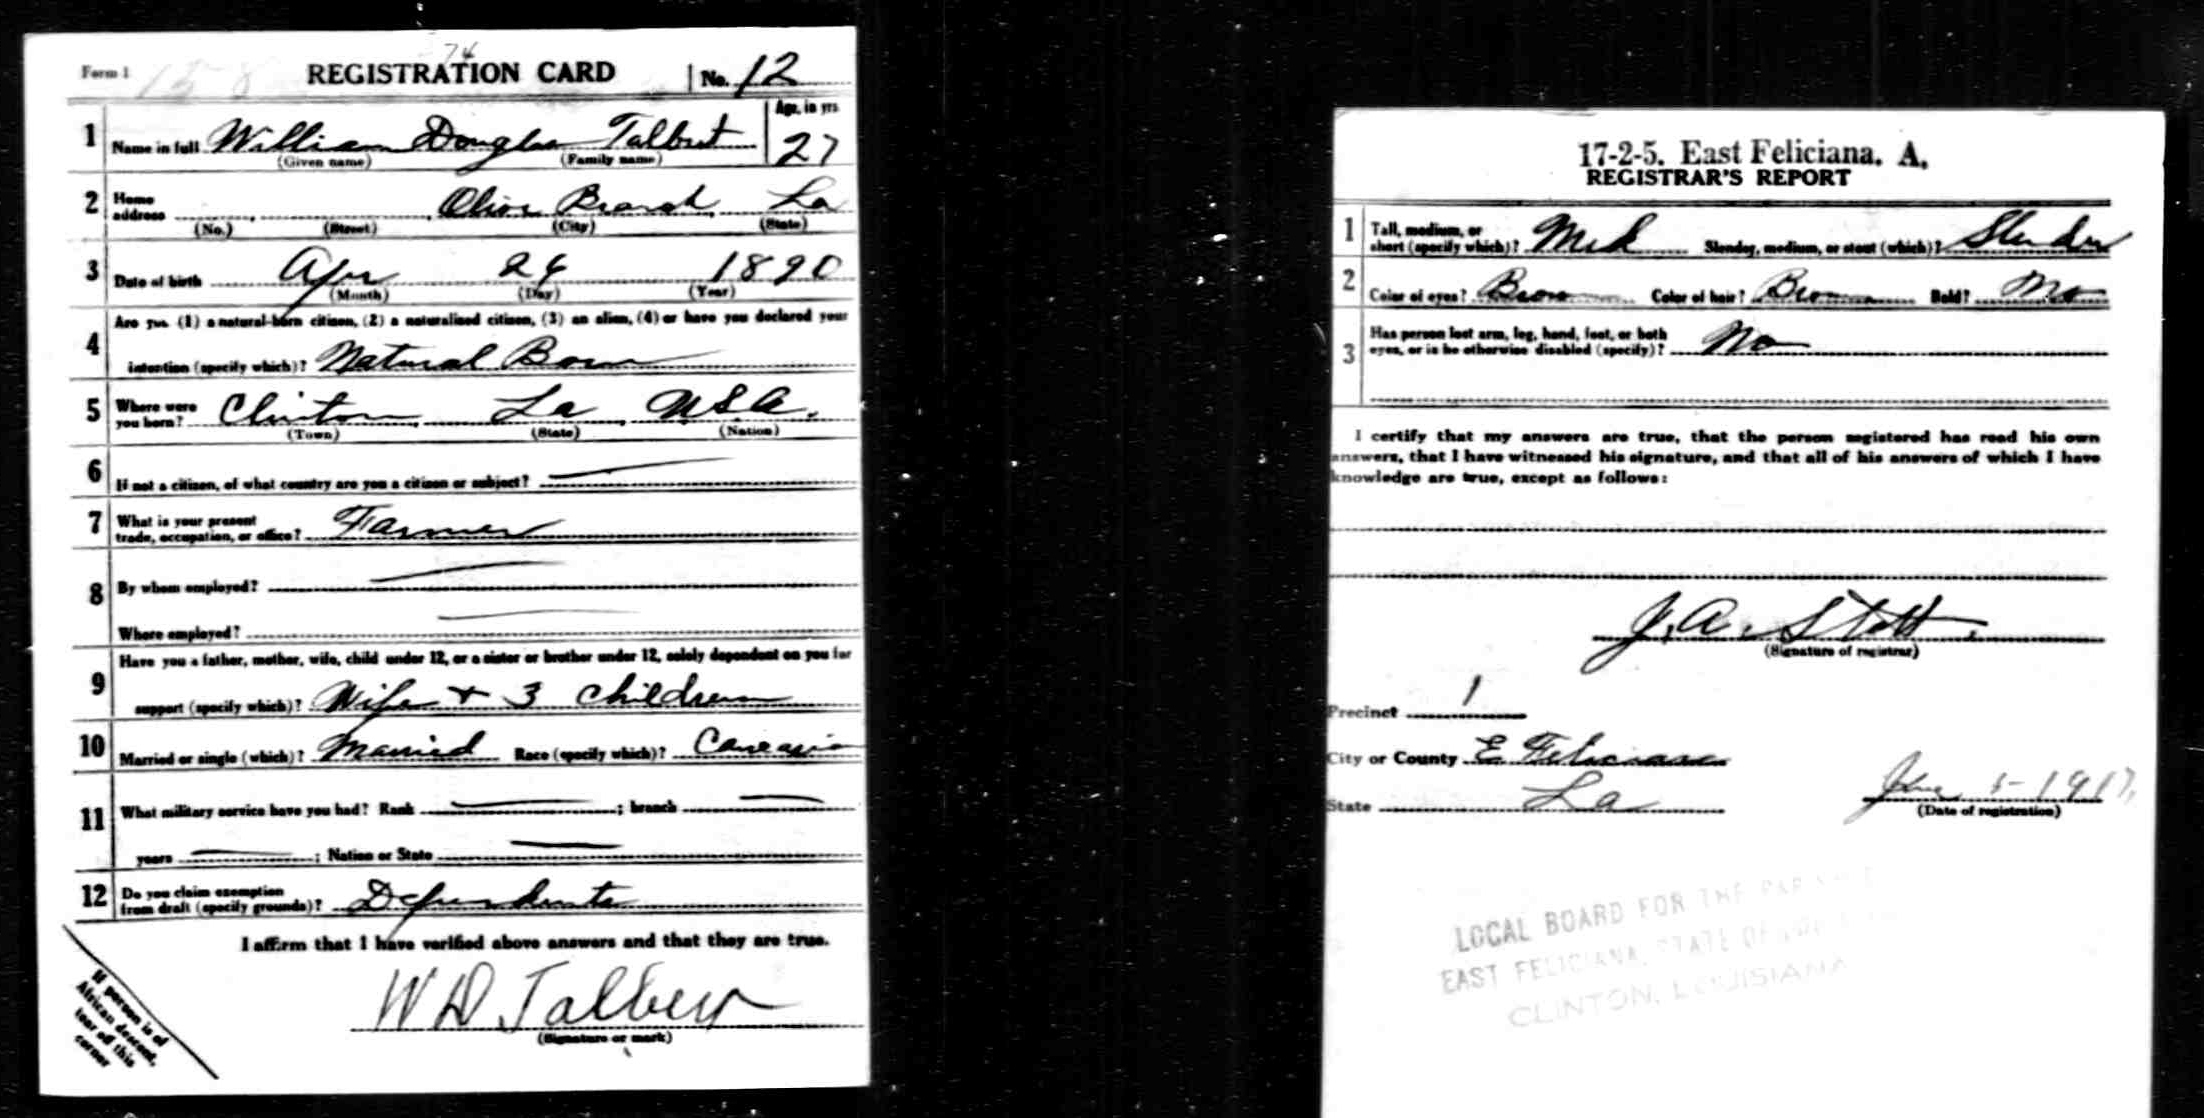 74
Form 1 158 REGISTRATION CARD No. 12
Age, in yrs
1 Name in full William Douglas Talbert 27
(Given name) (Family name)
2 Home address Olive Branch, La
(No.) (Street) (City) (State)
3 Date of birth Apr 24 1890
(Month) (Day) (Year)
4 Are you (1) a natural-born citizen, (2) a naturalized citizen, (3) an alien, (4) or have you declared your
intention (specify which)? Natural Born
5 Where were you born? Clinton, La, U.S.A.
(Town) (State) (Nation)
6 If not a citizen, of what country are you a citizen or subject?
7 What is your present trade, occupation, or office? Farmer
8 By whom employed?
Where employed?
9 Have you a father, mother, wife, child under 12, or a sister or brother under 12, solely dependent on you for
support (specify which)? Wife + 3 children
10 Married or single (which)? Married Race (specify which)? Caucasian
11 What military service have you had? Rank ; branch
years ; Nation or State
12 Do you claim exemption from draft (specify grounds)? Dependents
I affirm that I have verified above answers and that they are true.
W D Talbert
(Signature or mark)
If person is of
African descent,
tear off this
corner
17-2-5. East Feliciana. A.
REGISTRAR'S REPORT
1 Tall, medium, or short (specify which)? Med Slender, medium, or stout (which)? Slender
2 Color of eyes? Brown Color of hair? Brown Bald? No
3 Has person lost arm, leg, hand, foot, or both eyes, or is he otherwise disabled (specify)? No
I certify that my answers are true, that the person registered has read his own
answers, that I have witnessed his signature, and that all of his answers of which I have
knowledge are true, except as follows:
J. A. Stott
(Signature of registrar)
Precinct 1
City or County E Feliciana
State La June 5-1917,
(Date of registration)
LOCAL BOARD FOR THE PARISH
EAST FELICIANA, STATE OF
CLINTON, LOUISIANA